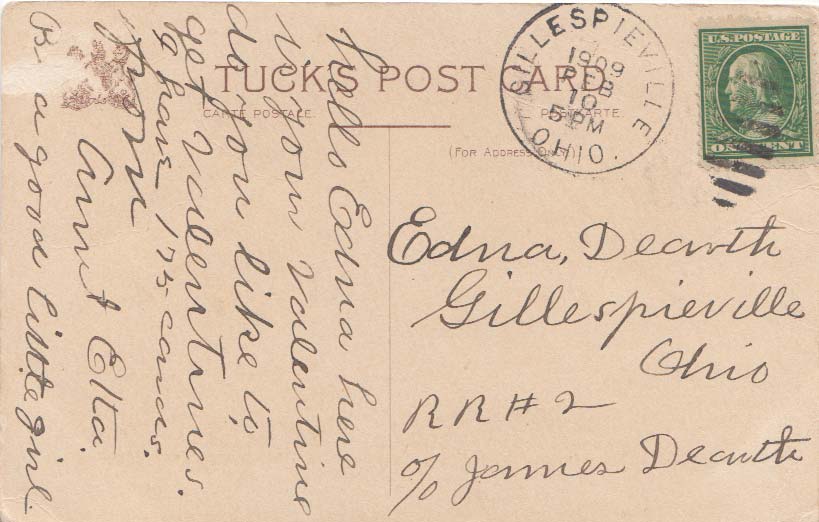 TUCK'S POST CARD
CARTE POSTALE.
POSTKARTE.
(For Address Only)
GILLESPIEVILLE
1909
FEB
10
5 PM
OHIO.
U.S. POSTAGE
ONE CENT
hello Edna here
is your valentine
do you like to
get valentines.
I have 175 cards.
from
Aunt Etta.
B a good little girl.
Edna, Dearth
Gillespieville
Ohio
RR#2
c/o James Dearth